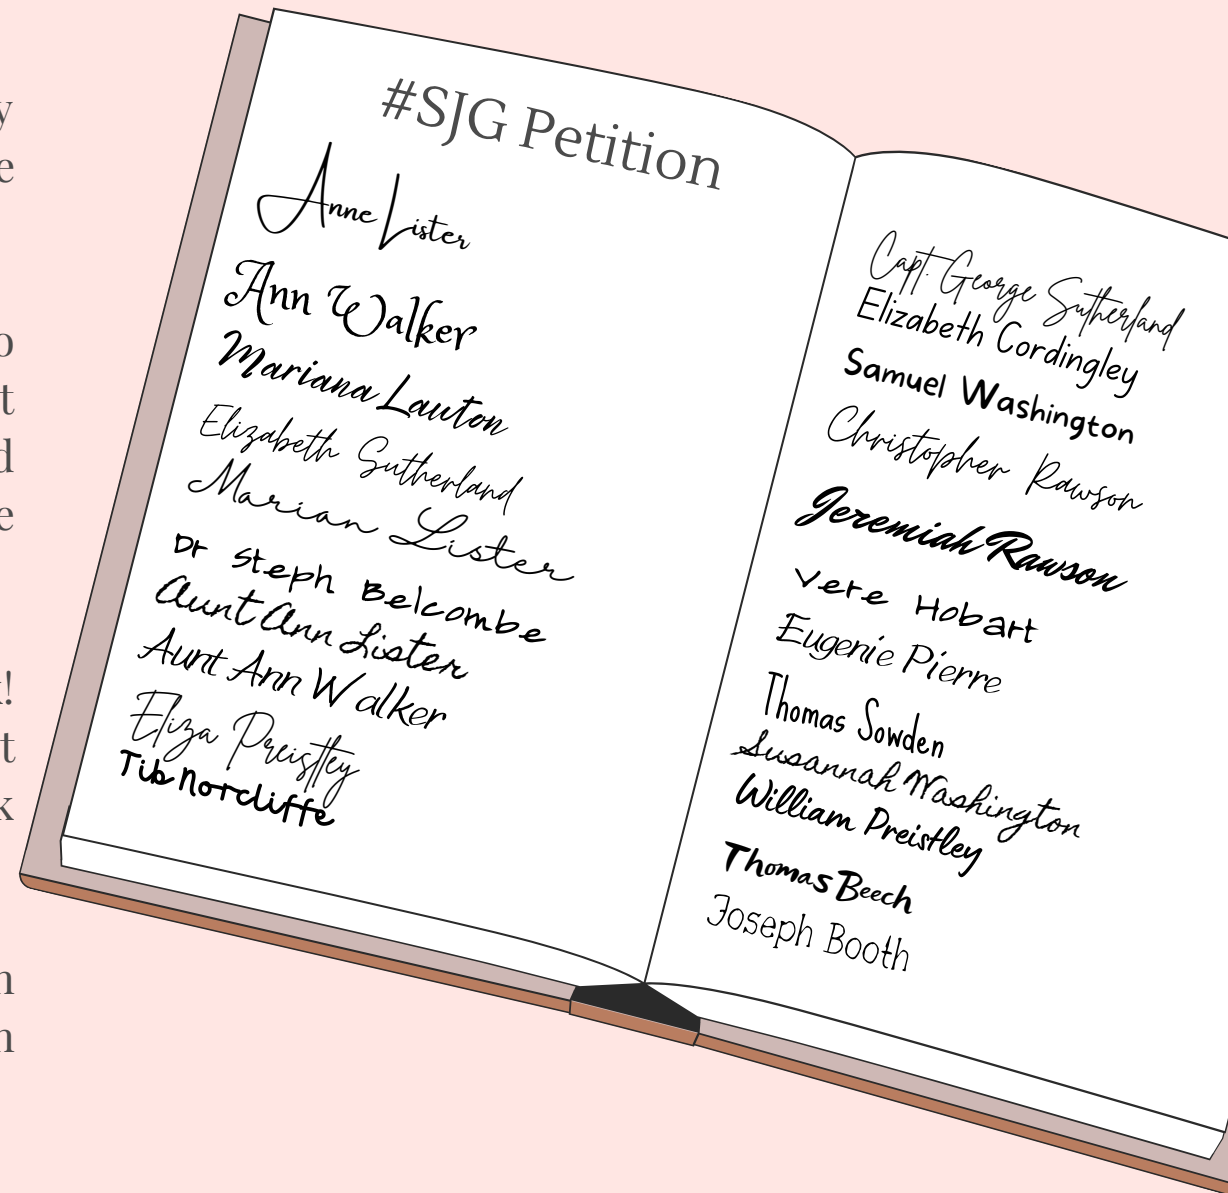 #SJG Petition
Anne Lister
Ann Walker
Mariana Lawton
Elizabeth Sutherland
Marian Lister
Dr Steph Belcombe
Aunt Ann Lister
Aunt Ann Walker
Eliza Preistley
Tib Norcliffe
Capt. George Sutherland
Elizabeth Cordingley
Samuel Washington
Christopher Rawson
Jeremiah Rawson
Vere Hobart
Eugenie Pierre
Thomas Sowden
Susannah Washington
William Preistley
Thomas Beech
Joseph Booth